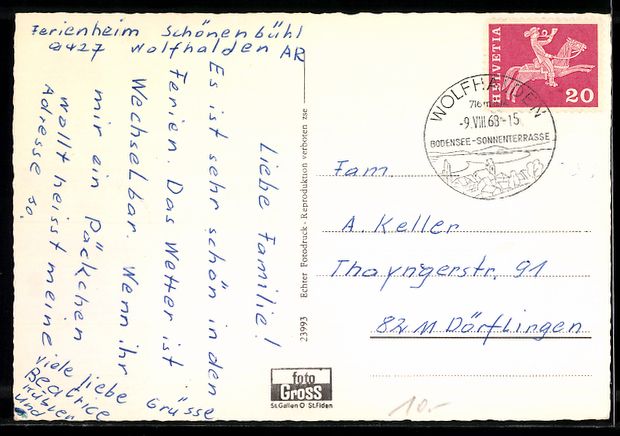 Ferienheim Schönenbühl
9427 Wolfhalden AR
Liebe Familie!
Es ist sehr schön in den
Ferien. Das Wetter ist
Wechselbar. Wenn ihr
mir ein Päckchen
wollt heisst meine
Adresse so.
viele liebe Grüsse
Beatrice
Kübler
und
23993 Echter Fotodruck - Reproduktion verboten
foto
Gross
St.Gallen O St.Fiden
HELVETIA
20
WOLFHALDEN
716 m
-9.VIII.68-15
BODENSEE-SONNENTERRASSE
Fam
A. Keller
Thayngerstr. 91
82 M Dörflingen
10.-